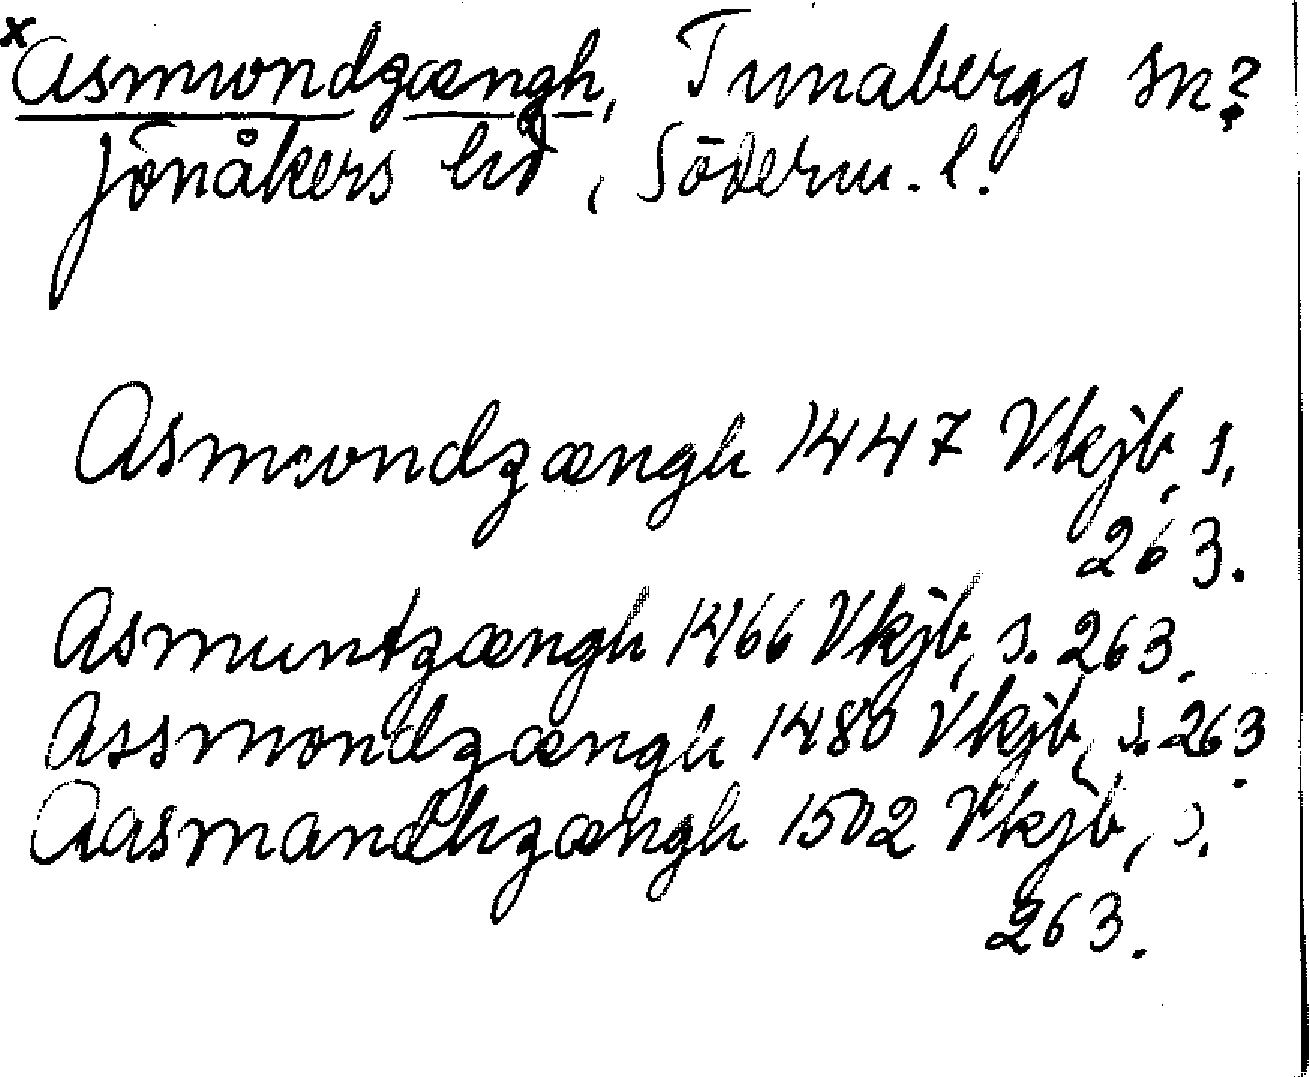 x Asmwndzængh, Tunabergs sn?
Jönåkers hd, Söderm. l.
Asmwndzængh 1447 Vkjb, s.
263.
Asmuntzængh 1466 Vkjb, s. 263.
Assmondzængh 1480 Vkjb, s. 263.
Aasmandhzængh 1502 Vkjb, s.
263.